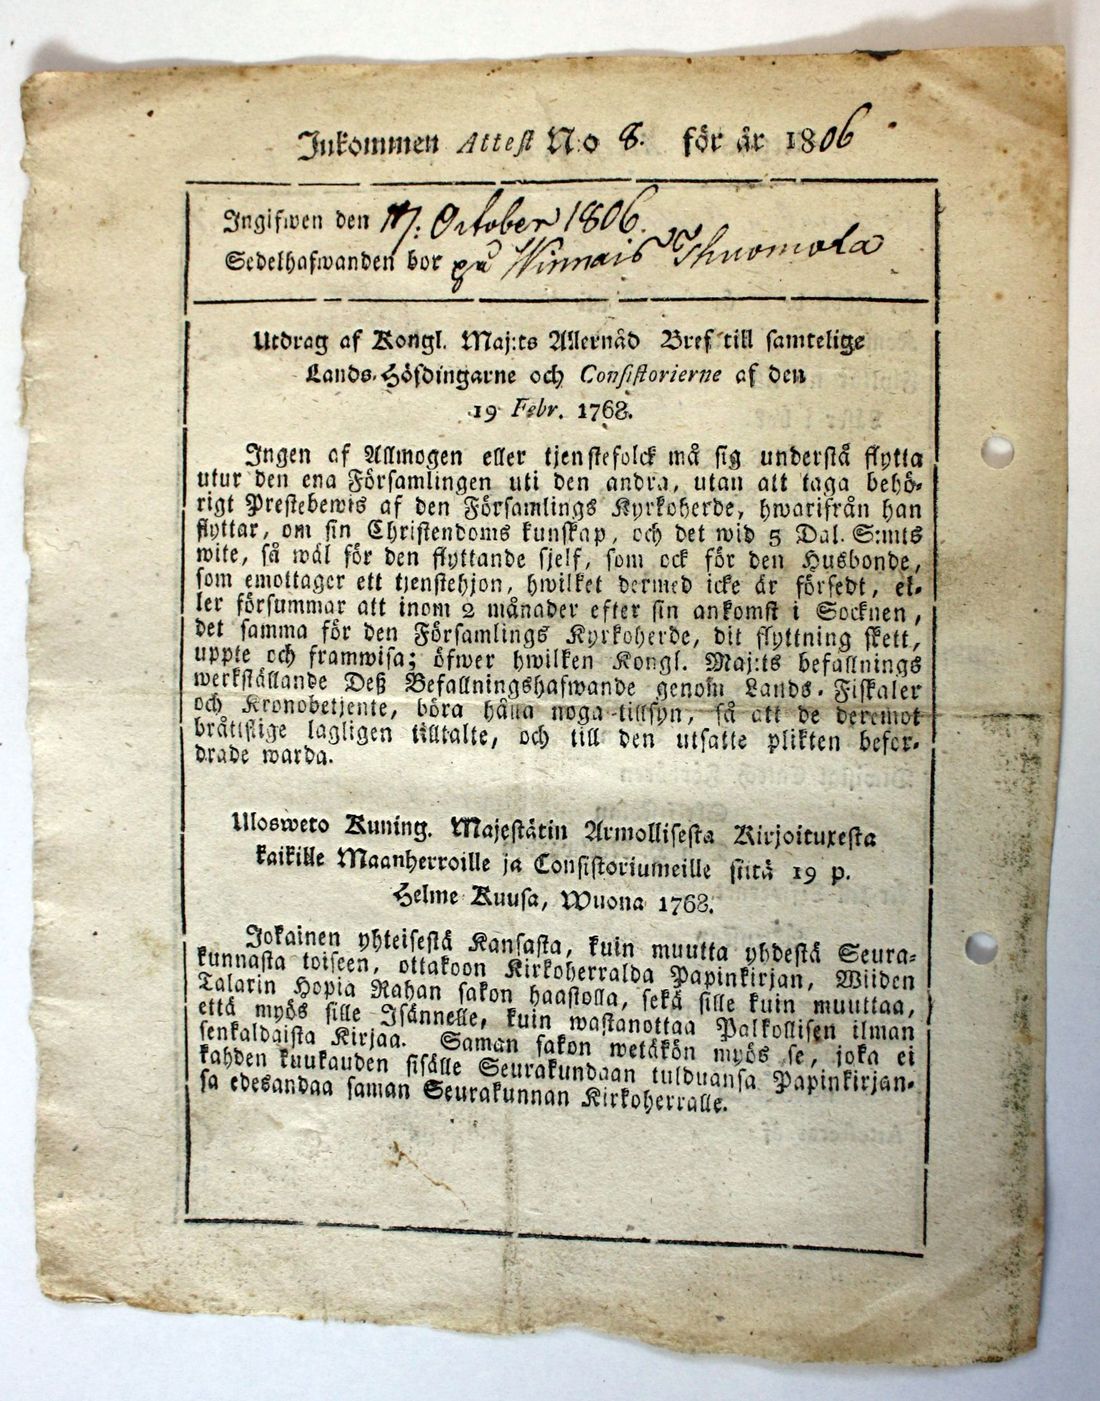 Inkommen Attest N:o 8. för år 1806
Ingifwen den 17. October 1806.
Sedelhafwanden bor på Winnais Thuomola
Utdrag af Kongl. Maj:ts Allernåd Bref till samtelige
Lands-Höfdingarne och Consistorierne af den
19 Febr. 1768.
Ingen af Allmogen eller tjenstefolck må sig understå flytta
utur den ena Församlingen uti den andra, utan att taga behö-
rigt Prestebewis af den Församlings Kyrkoherde, hwarifrån han
flyttar, om sin Christendoms kunskap, och det wid 5 Dal. S:mts
wite, så wäl för den flyttande sjelf, som ock för den Husbonde,
som emottager ett tjenstehjon, hwilket dermed icke är försedt, el-
ler försummar att inom 2 månader efter sin ankomst i Socknen,
det samma för den Församlings Kyrkoherde, dit flyttning skett,
uppte och framwisa; öfwer hwilken Kongl. Maj:ts befallnings
werkställande Deß Befallningshafwande genom Lands-Fiskaler
och Kronobetjente, böra hälla noga tillsyn, så att de deremot
bråtislige lagligen tilltalte, och till den utsatte plikten befor-
drade warda.
Ulosweto Kuning. Majestätin Armollisesta Kirjoituxesta
kaikille Maanherroille ja Consistoriumeille siitä 19 p.
Helme Kuusa, Wuona 1768.
Jokainen yhteisestä Kansasta, kuin muutta yhdestä Seura-
kunnasta toiseen, ottakoon Kirkoherralda Papinkirjan, Wiiden
Talarin Hopia Rahan sakon haastolla, sekä sille kuin muuttaa,
että myös sille Isännelle, kuin wastanottaa Palkollisen ilman
senkaldaista Kirjaa. Saman sakon wetäkön myös se, joka ei
kahden kuukauden sisälle Seurakundaan tulduansa Papinkirjan-
sa edesandaa saman Seurakunnan Kirkoherralle.